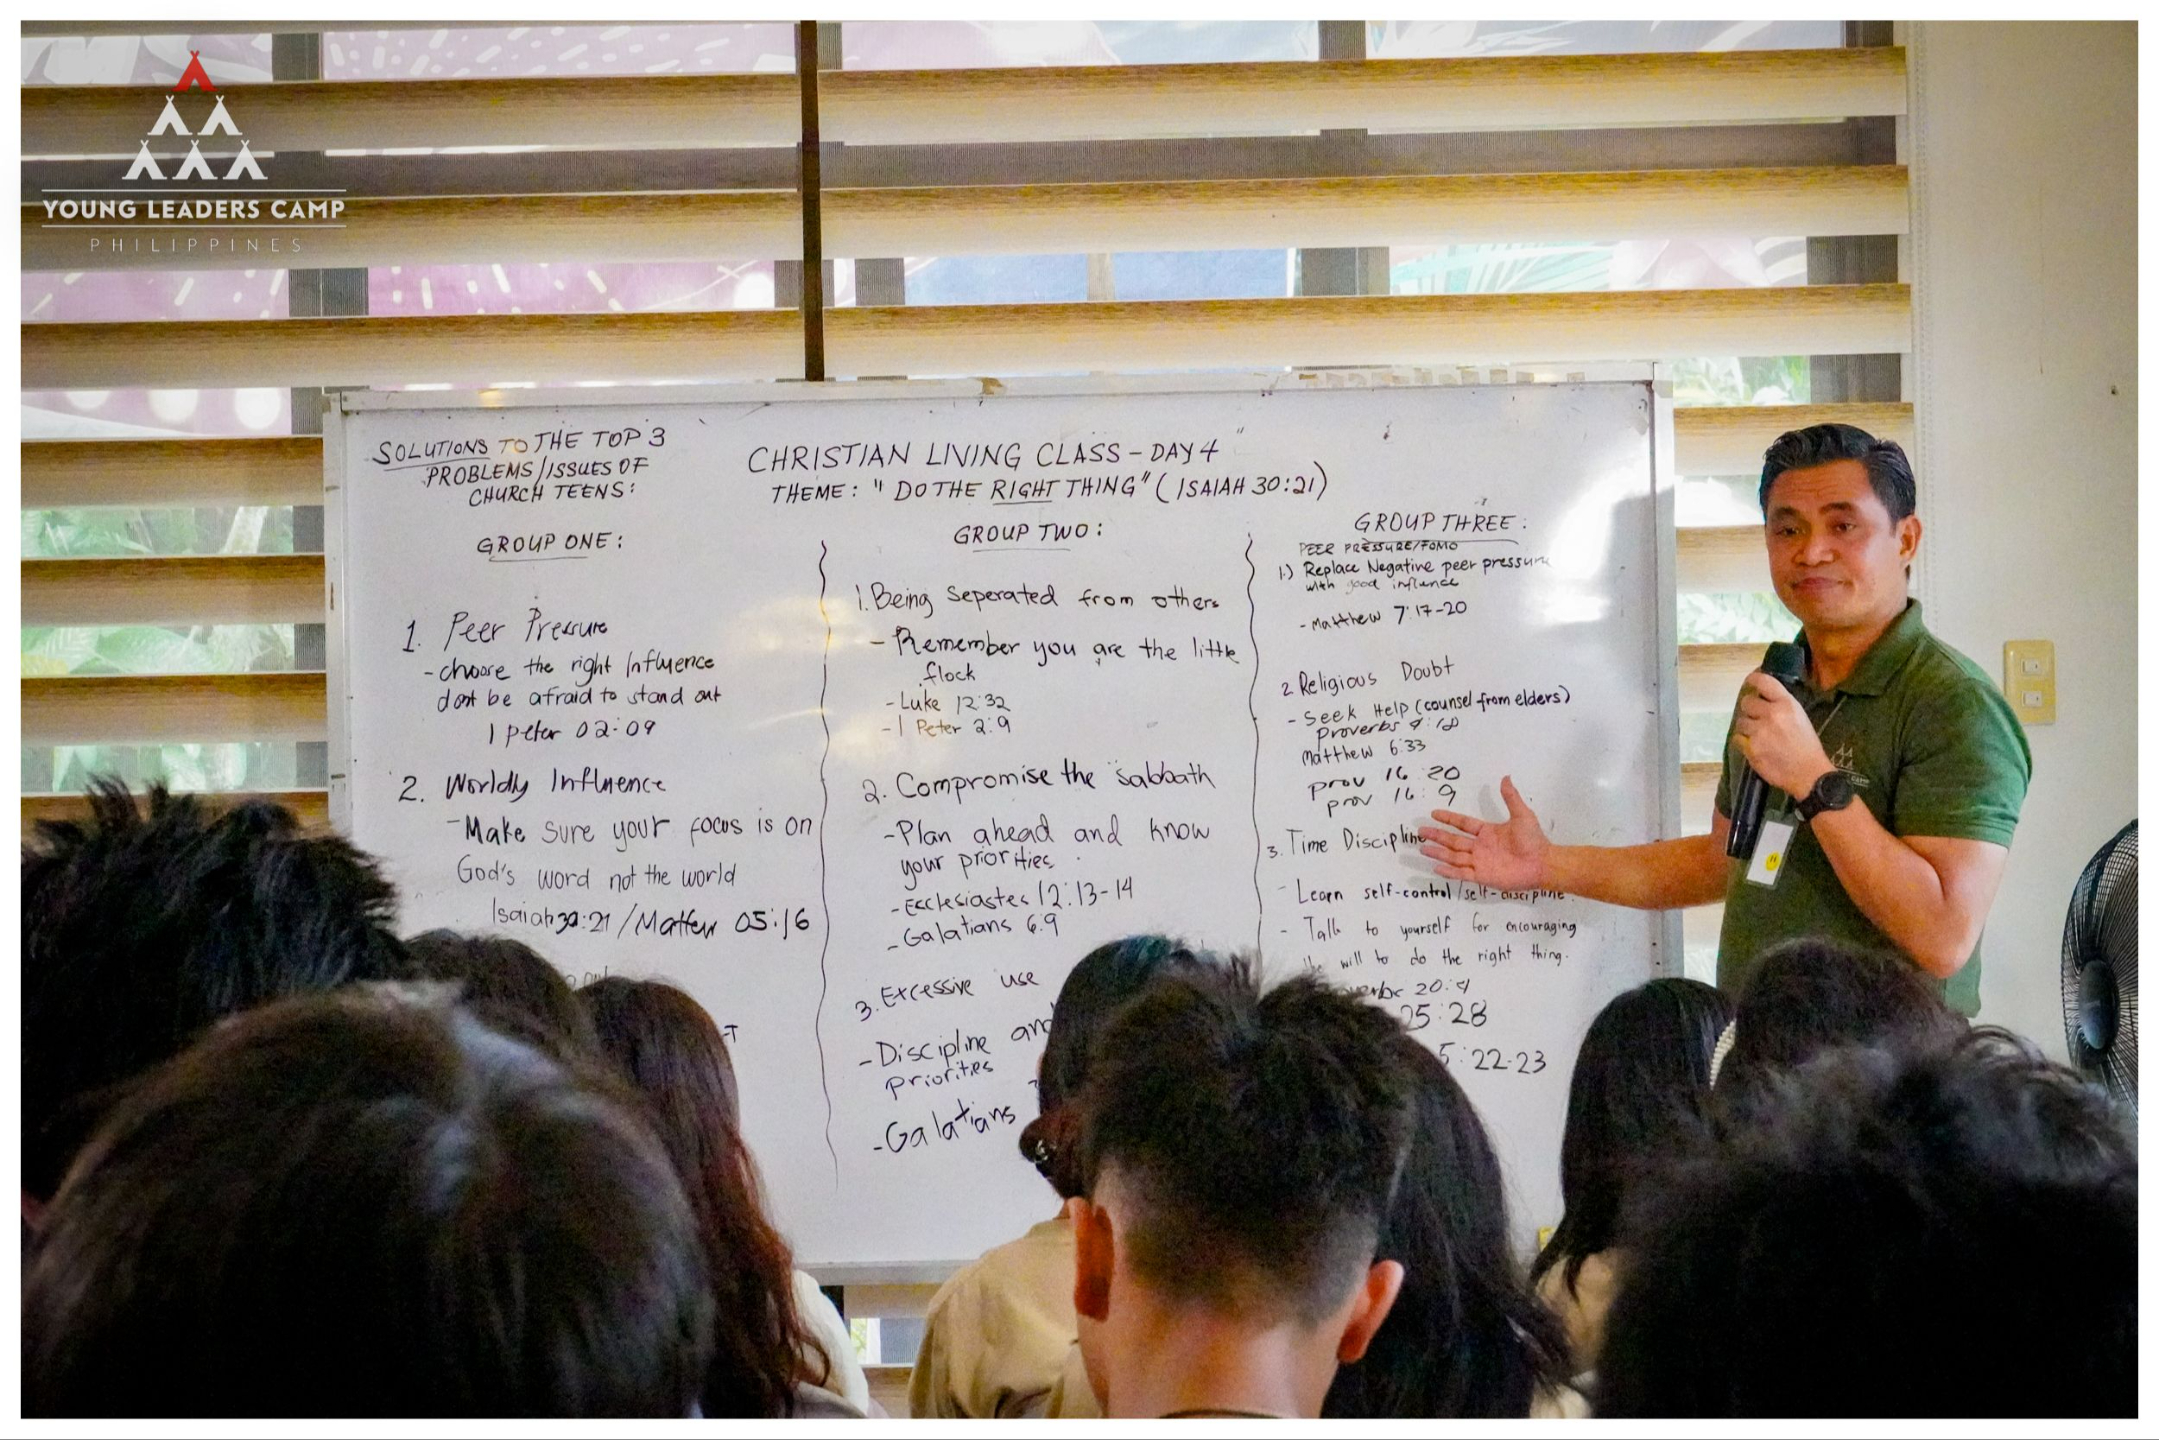 YOUNG LEADERS CAMP
PHILIPPINES
SOLUTIONS TO THE TOP 3
PROBLEMS/ISSUES OF
CHURCH TEENS:
CHRISTIAN LIVING CLASS - DAY 4"
THEME: "DO THE RIGHT THING" (ISAIAH 30:21)
GROUP ONE:
1. Peer Pressure
- choose the right Influence
dont be afraid to stand out
1 peter 02:09
2. Worldly Influence
- Make sure your focus is on
God's word not the world
Isaiah 30:21 / Mattew 05:16
GROUP TWO:
1. Being Seperated from others
- Remember you are the little
flock
- Luke 12:32
- 1 Peter 2:9
2. Compromise the sabbath
- Plan ahead and know
your priorities
- Ecclesiastes 12:13-14
- Galatians 6:9
3. Excessive use
- Discipline and
priorities
- Galatians
GROUP THREE:
PEER PRESSURE/FOMO
1.) Replace Negative peer pressure
with good influence
- Matthew 7:17-20
2 Religious Doubt
- Seek Help (counsel from elders)
Proverbs
Matthew 6:33
prov 16:20
prov 16:9
3. Time Discipline
- Learn self-control/self-discipline
- Talk to yourself for encouraging
will to do the right thing.
20:4
25:28
5:22-23